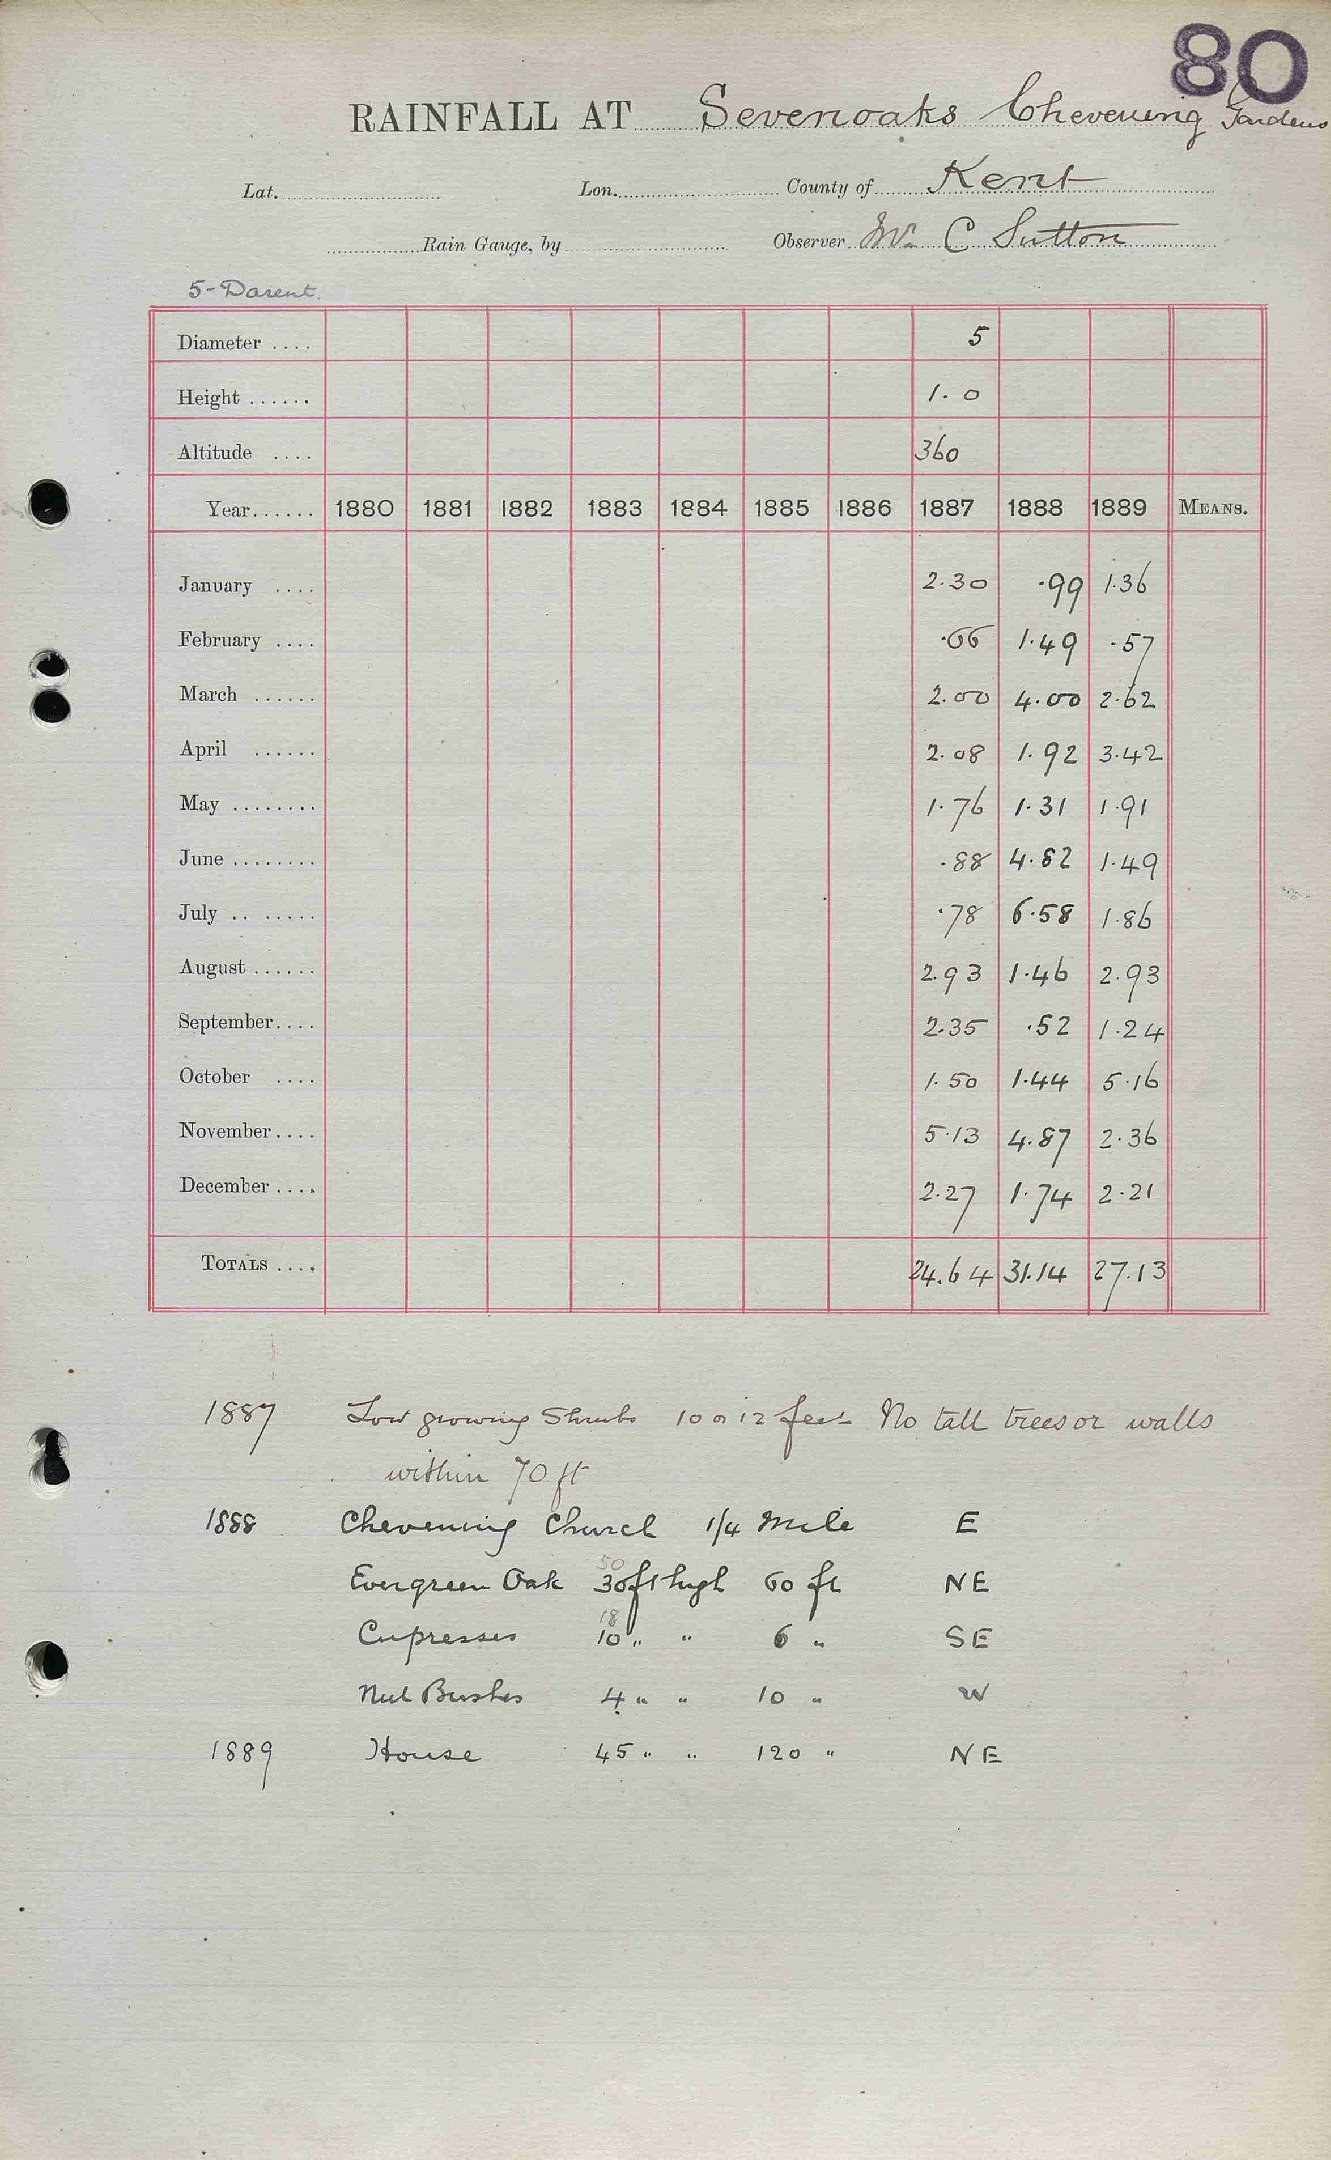 80
RAINFALL AT Sevenoaks Chevening Gardens
Lat. Lon. County of Kent
Rain Gauge, by Observer Mr. C Sutton
5-Darent.
Diameter .... 5
Height ...... 1. 0
Altitude .... 360
Year...... 1880 1881 1882 1883 1884 1885 1886 1887 1888 1889 MEANS.
January .... 2.30 .99 1.36
February .... .66 1.49 .57
March ...... 2.00 4.00 2.62
April ...... 2.08 1.92 3.42
May ........ 1.76 1.31 1.91
June ........ .88 4.82 1.49
July .. ..... .78 6.58 1.86
August ...... 2.93 1.46 2.93
September.... 2.35 .52 1.24
October .... 1.50 1.44 5.16
November.... 5.13 4.87 2.36
December .... 2.27 1.74 2.21
TOTALS .... 24.64 31.14 27.13
1887 Low growing Shrubs 10 or 12 feet No tall trees or walls
within 70 ft
1888 Chevening Church 1/4 Mile E
50
Evergreen Oak 30 ft high 60 ft NE
18
Cupresses 10 " " 6 " SE
Nut Bushes 4 " " 10 " W
1889 House 45 " " 120 " NE